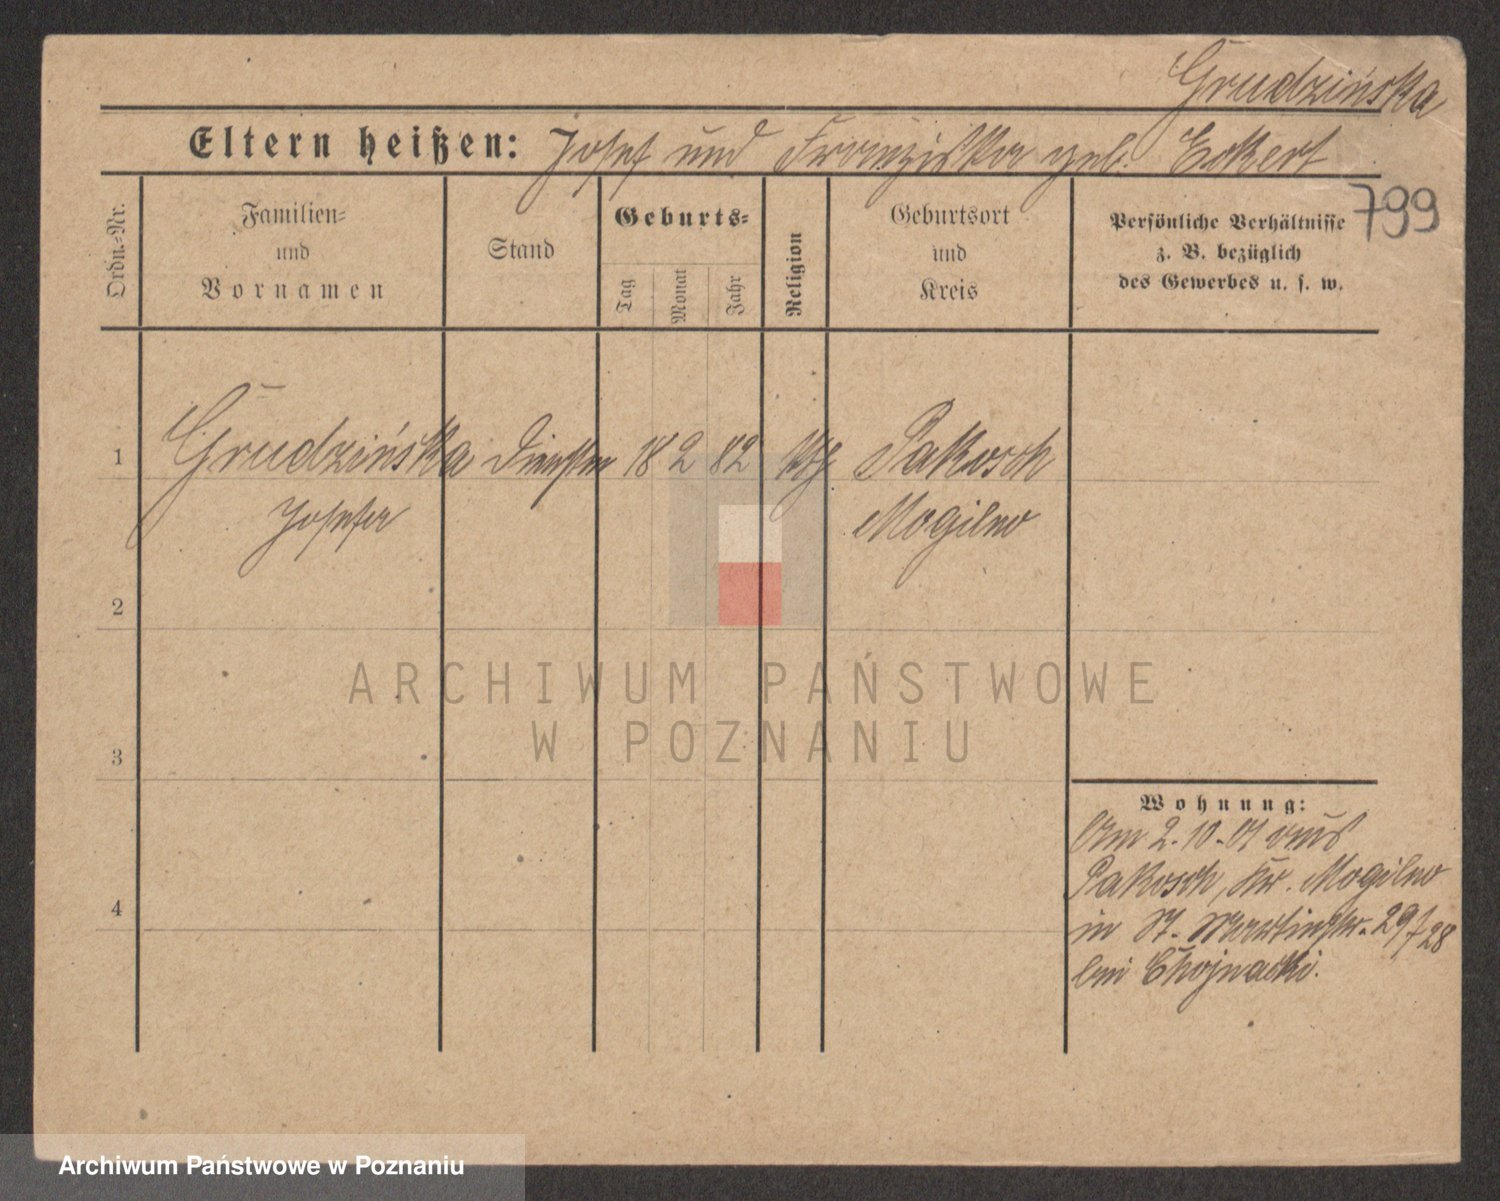 Grudzińska
Eltern heißen: Josef und Franziska geb. Eckert
799
Ordn.-Nr.
Familien-
und
Vornamen
Stand
Geburts-
Tag
Monat
Jahr
Religion
Geburtsort
und
Kreis
Persönliche Verhältnisse
z. B. bezüglich
des Gewerbes u. s. w.
1 Grudzińska 18 2 82 ktħ Pakosch
Josefa Mogilno
2
3
4
Wohnung:
Am 2.10.01 aus
Pakosch, Kr. Mogilno
in St. Martinstr. 29
bei Chojnacki.
ARCHIWUM PAŃSTWOWE
W POZNANIU
Archiwum Państwowe w Poznaniu